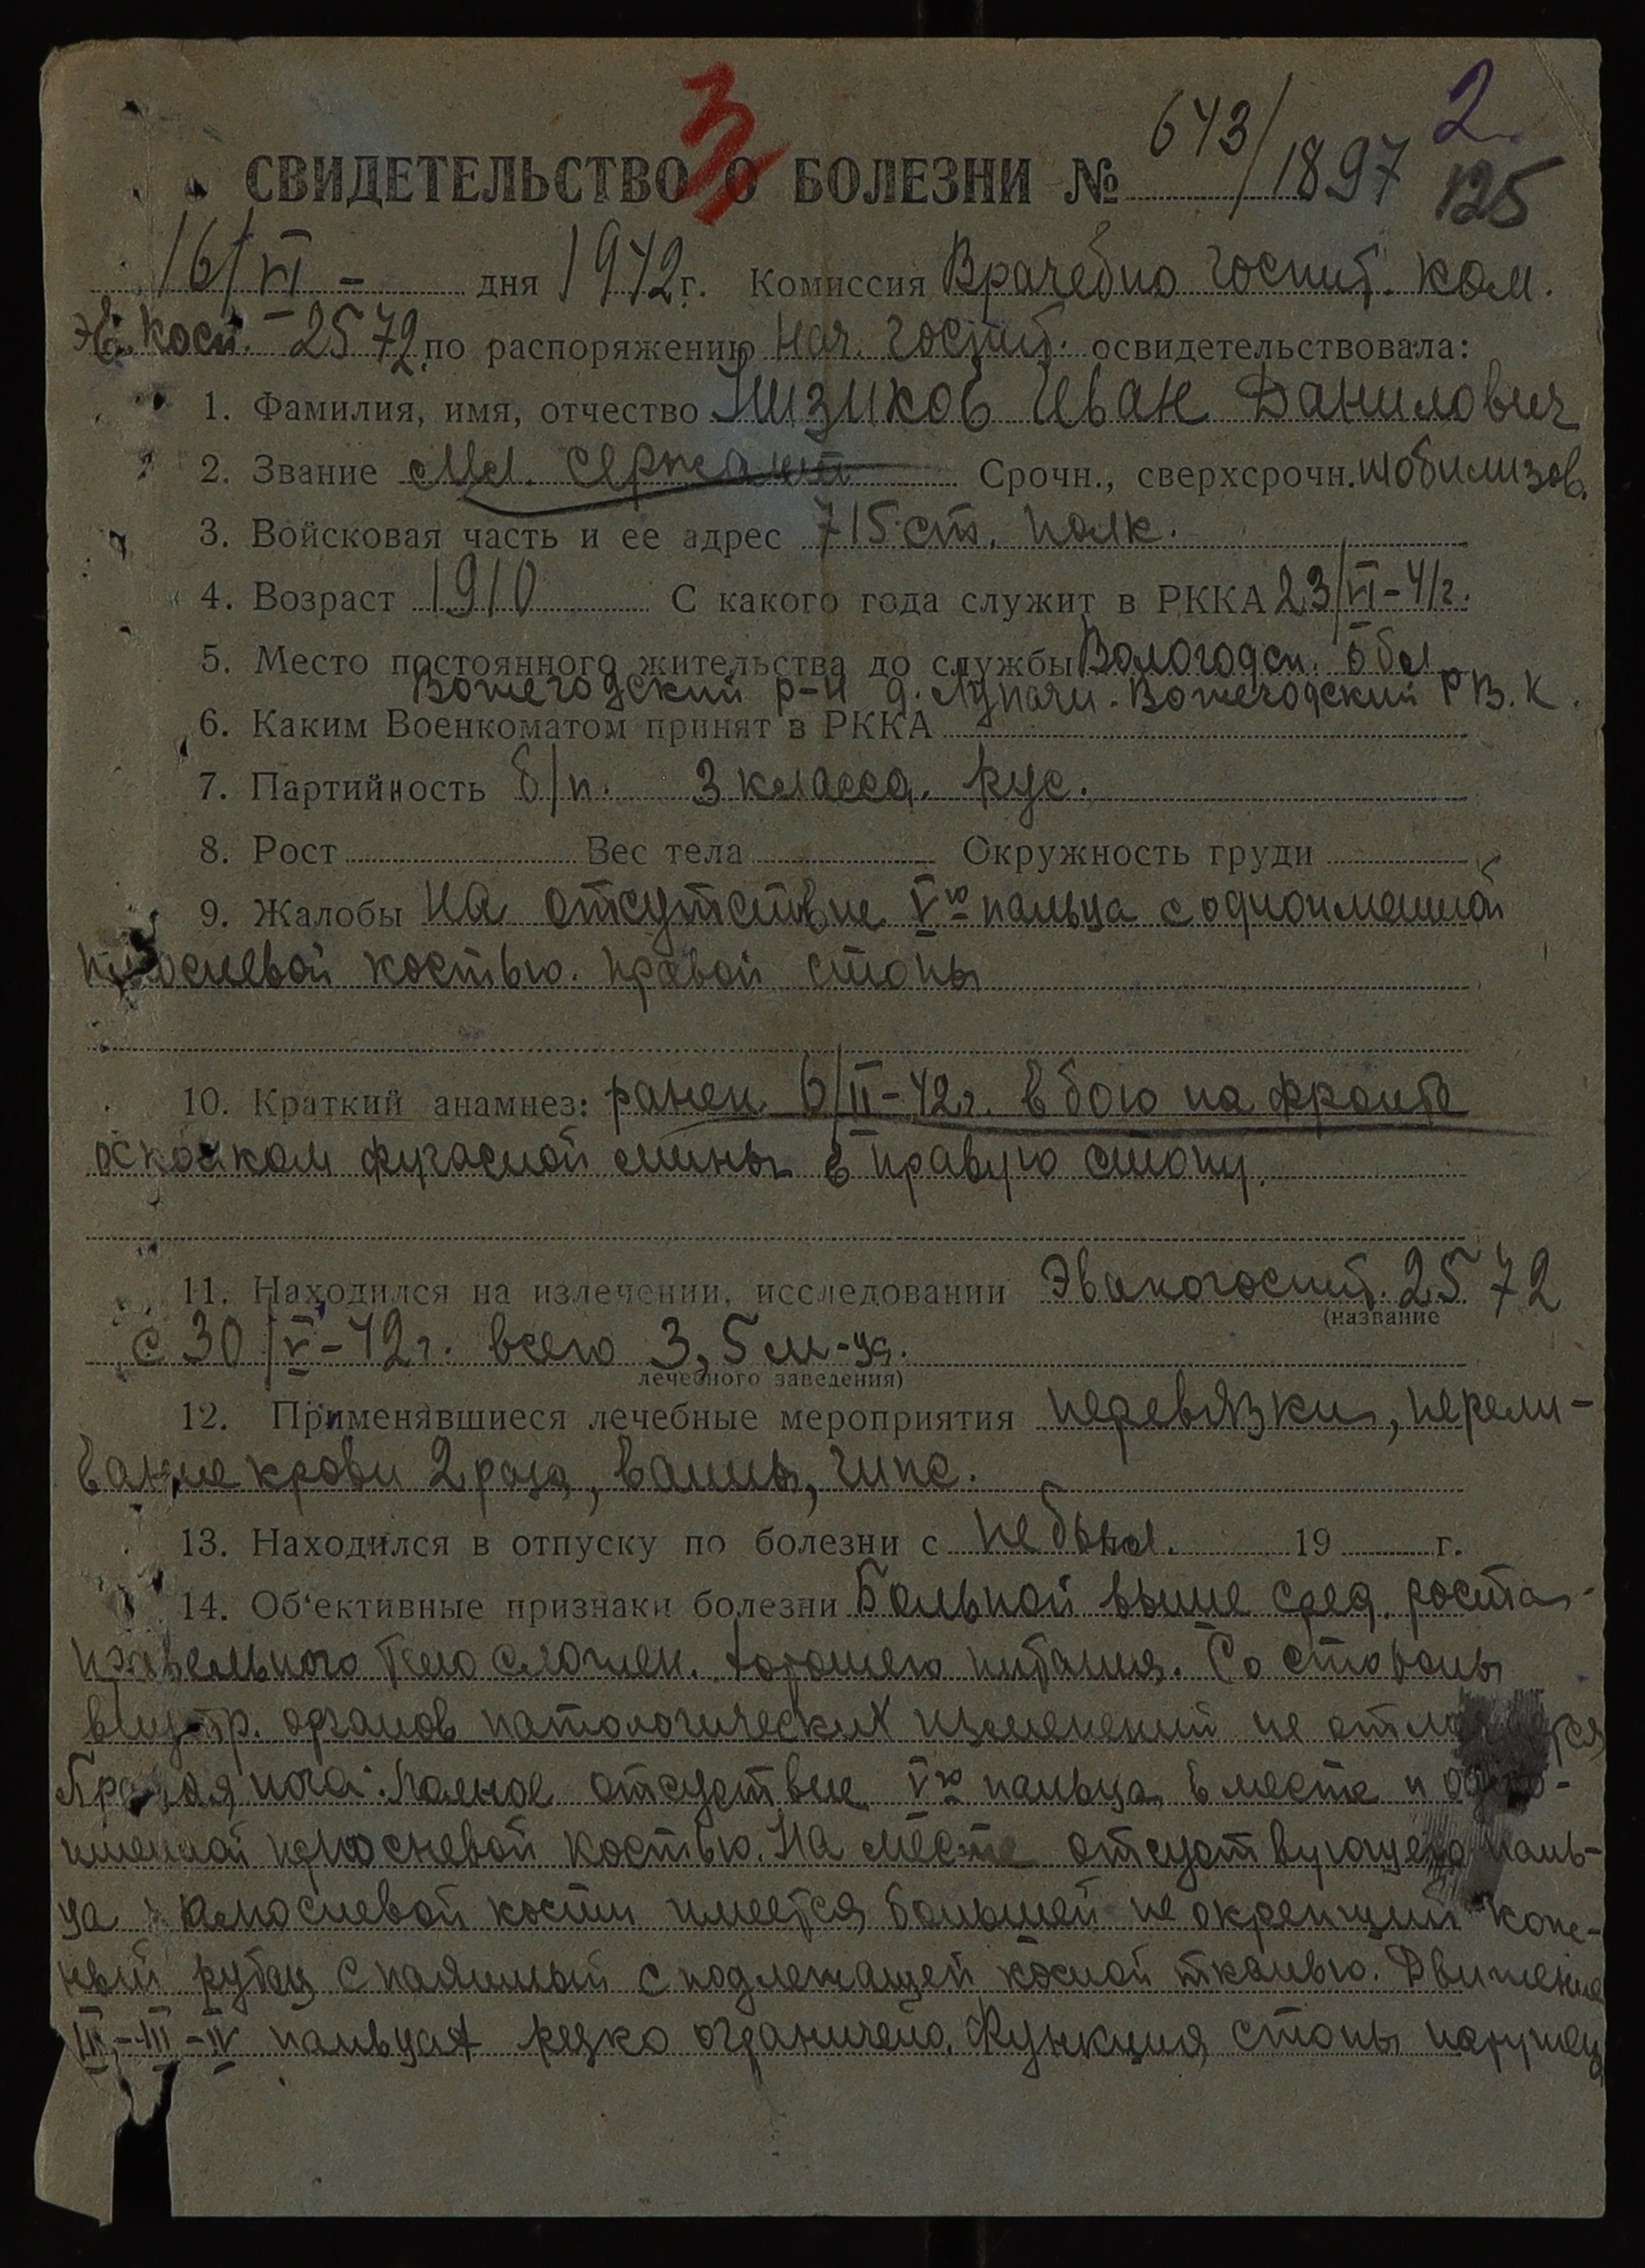 3
2.
СВИДЕТЕЛЬСТВО О БОЛЕЗНИ № 643/1897 125
16/VI – дня 1942 г. Комиссия Врачебно госпит. ком.
2572 по распоряжению нач. госпит. освидетельствовала:
1. Фамилия, имя, отчество Низиков Иван Данилович
2. Звание мл. сержант Срочн., сверхсрочн. мобилизов.
3. Войсковая часть и ее адрес 715 ст. полк.
4. Возраст 1910 С какого года служит в РККА 23/VI-41г.
5. Место постоянного жительства до службы Вологодск. обл
Вожегодский р-н д. Лупачи. Вожегодский РВ.К.
6. Каким Военкоматом принят в РККА
7. Партийность б/п. 3 класса. рус.
8. Рост Вес тела Окружность груди
9. Жалобы на отсутствие Vго пальца с одноименной
плюсневой костью. правой стопы
10. Краткий анамнез: ранен 6/II-42г. в бою на фронте
осколком фугасной мины в правую стопу.
11. Находился на излечении, исследовании Эвакогоспит. 2572
(название
с 30/V-42г. всего 3,5 м-ца.
лечебного заведения)
12. Применявшиеся лечебные мероприятия перевязки, перели-
вание крови 2 раза, ванны, гипс.
13. Находился в отпуску по болезни с не был. 19 г.
14. Об'ективные признаки болезни Больной выше сред. роста
правельного тело сложен. хорошего питания. Со стороны
внутр. органов патологических изменений не отмечается
Правая нога: Полное отсутствие Vго пальца вместе и одно-
именной плюсневой костью. На месте отсутствующего паль-
ца плюсневой кости имеется большей не окрепщий кож-
ный рубец спаянный с подлежащей косной тканью. Движение
II-III-IV пальцах резко ограничено. Функция стопы нарушен